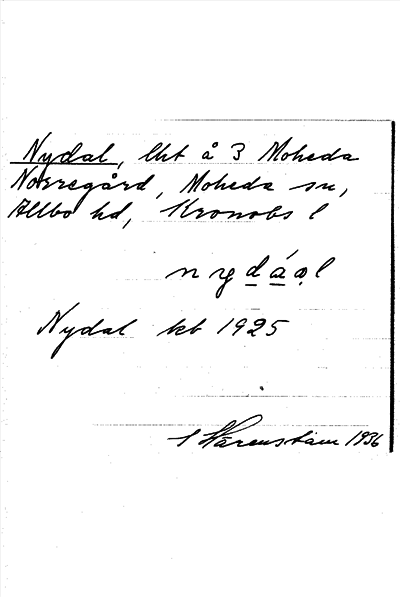 Nydal, lht å 3 Moheda
Norregård, Moheda sn,
Allbo hd, Kronobs l
n y d á a l
Nydal kb 1925
1936